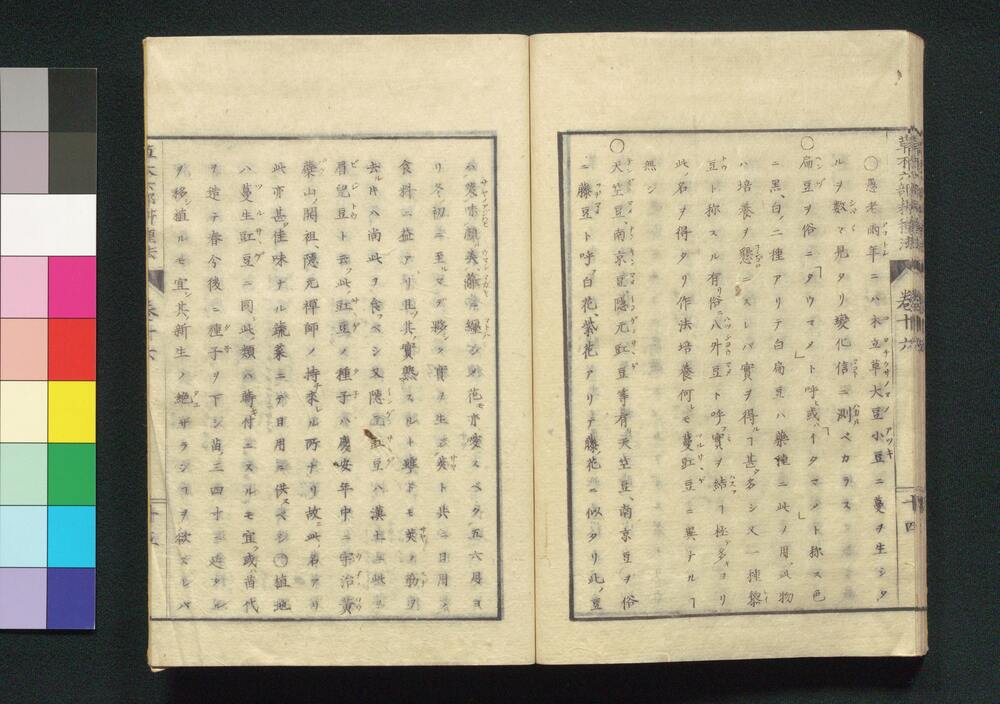 草木六部耕種法 卷十六 十四
○愚老兩年ニハ木立草大豆小豆ニ蔓ヲ生シタ
ルヲ數〻見タリ變化信ニ測ベカラス
○扁豆俗ニ「タウマメ」ト呼ヒ或ハ「イタマメ」ト称ス色
ニ黒、白ノ二種アリテ白扁豆ハ藥種ニ此ノ用此物
ハ培養ヲ懇ニスレバ實ヲ得ルヿ甚タ多シ又一種黎
豆ト称スル有リ俗ニ八外豆ト呼フ實ヲ結フヿ極テ多キヨリ
此ノ名ヲ得タリ作法培養何レモ蔓豇豆ニ異ナルヿ
無シ
○天竺豆、南京豆、隠元豇豆等有リ天竺豆、南京豆ヲ俗
ニ藤豆ト呼フ白花、紫花アリテ藤花ニ似タリ此ノ豆
ハ莢味
花モ亦愛スベク五六月ヨ
リ冬初ニ至ルマデ夥シク實ヲ生シ莢ト共ニ日用ノ
食料ニ益アリ且ツ其實熟スルト雖ドモ莢ノ筋ヲ
去ルキハ尚此ヲ食フベシ又隠元豇豆ハ漢土ニ此ヲ
眉兒豆ト云フ此豇豆ノ種子ハ慶安年中ニ宇治黄
藥山ノ開祖、隠元禪師ノ持来レル所ナリ故ニ此名アリ
此亦甚タ佳味ナル蔬菜ニテ日用ニ供スベシ○植地
ハ蔓生豇豆ニ同シ此類ハ蒔付ニスルモ宜フ或ハ苗代
ヲ造テ春分後ニ種子ヲ下シ苗三四寸ニ延タル
ヲ移シ植ルモ宜シ其新生ノ絶ザランヿヲ欲スレバ